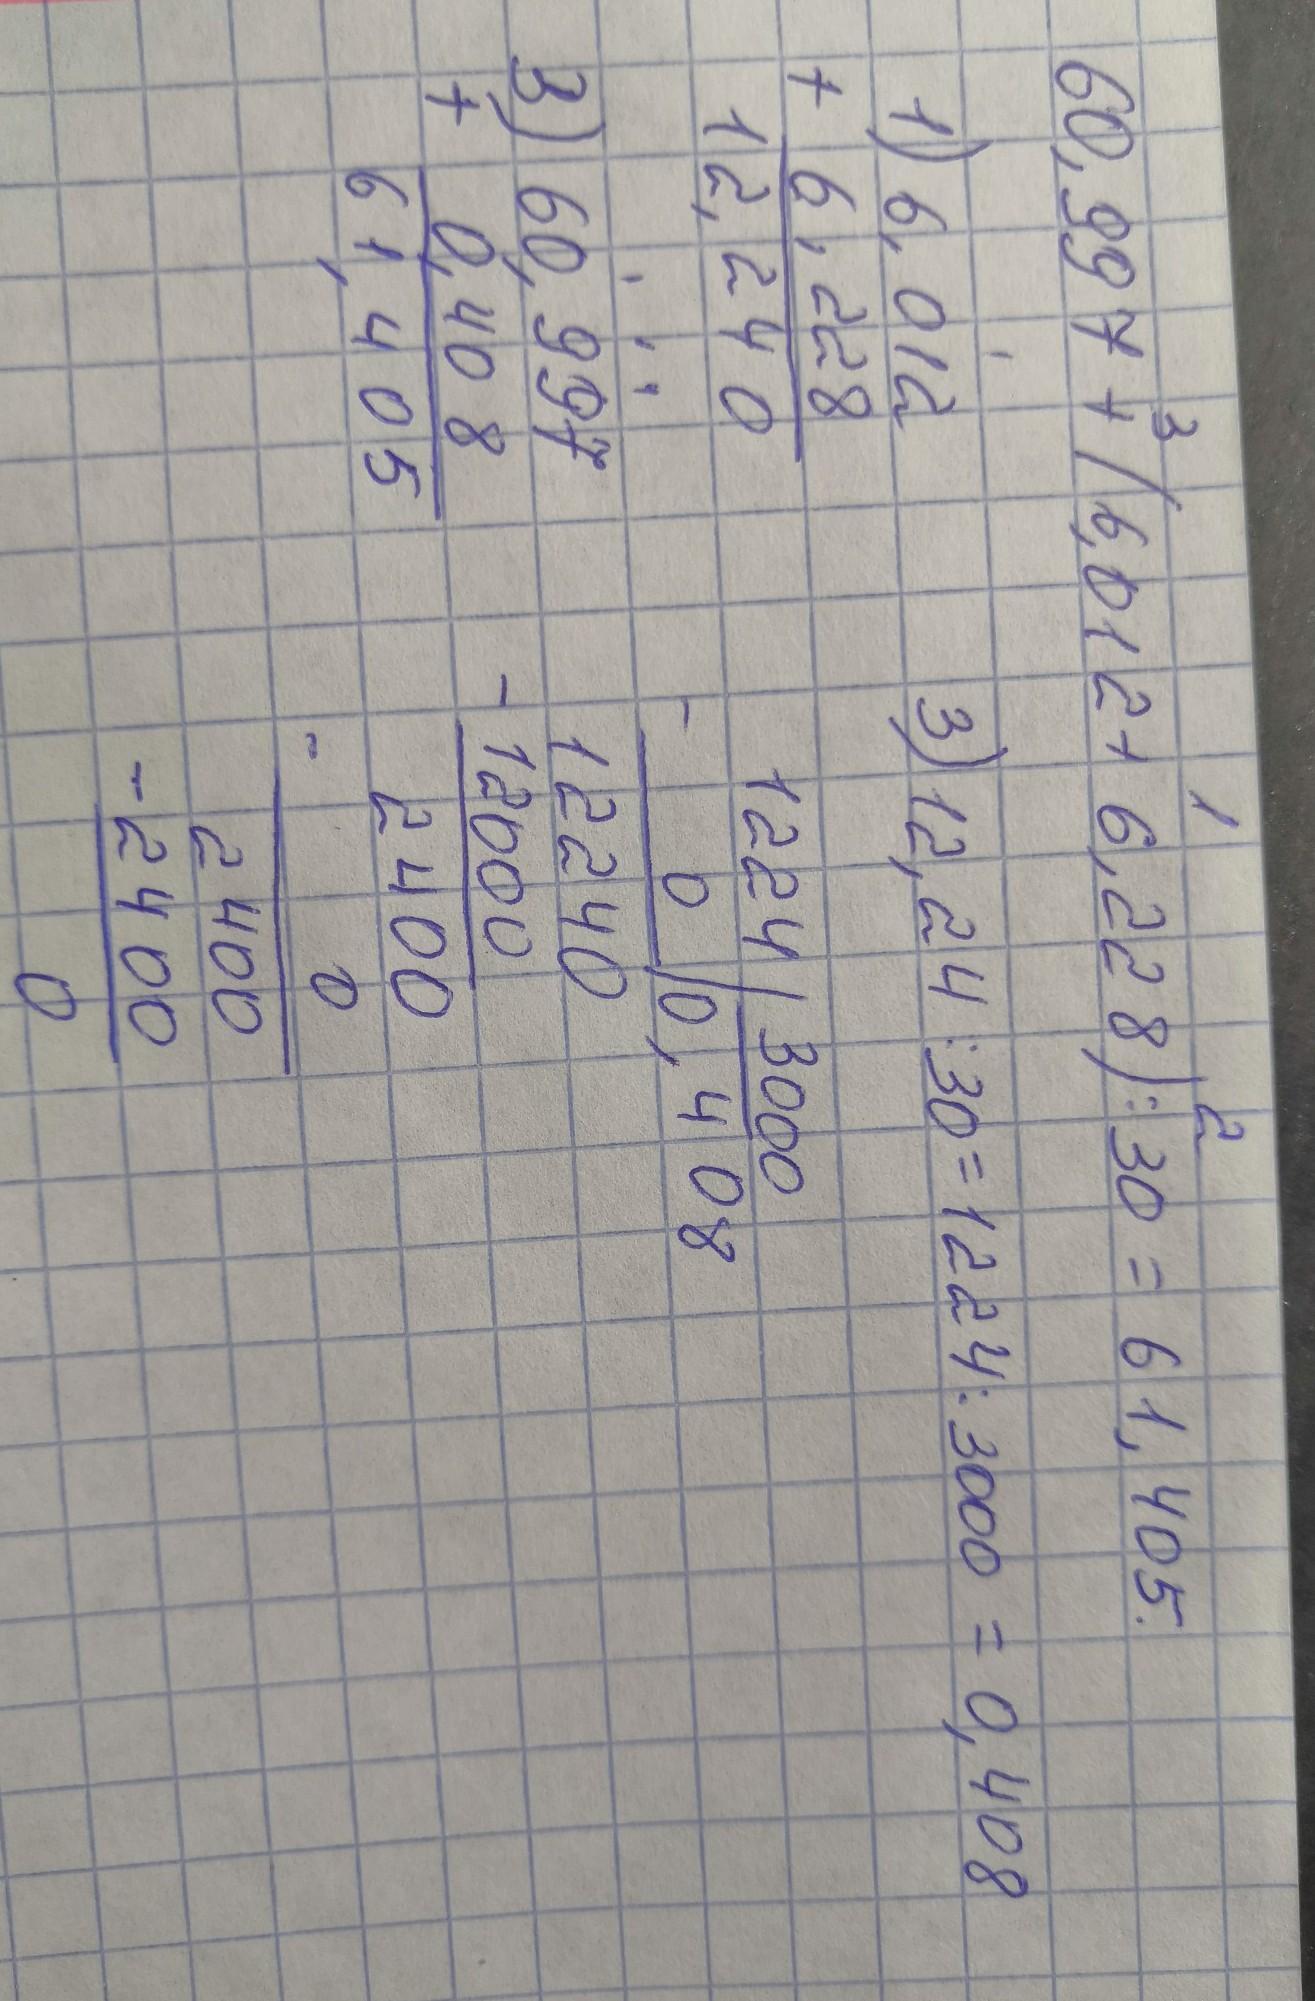 3 1 2
60,997 + (6,012 + 6,228) : 30 = 61,405.
1) 6,012
+ 6,228
12,240
3) 12,24 : 30 = 1224 : 3000 = 0,408
1224 | 3000
- 0 | 0,408
12240
- 12000
2400
- 0
2400
- 2400
0
3) 60,997
+ 0,408
61,405